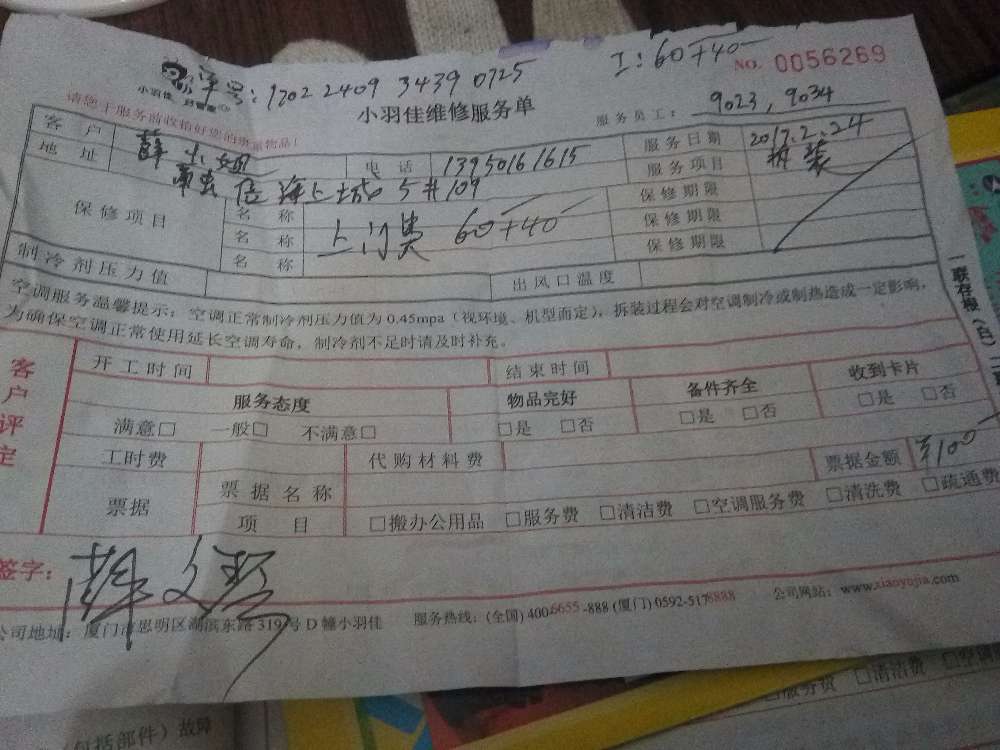 单号：170224093439 0725
工：60+40
NO. 0056269
小羽佳 好管家
请您于服务前收拾好您的贵重物品！
小羽佳维修服务单
服务员工：9023，9034
客户 薛小姐 电话 13950161615 服务日期 2017.2.24
地址 海上城 5#109 服务项目 拆装
保修项目 名称 保修期限
名称 上门费 60+40 保修期限
名称 保修期限
制冷剂压力值 出风口温度
空调服务温馨提示：空调正常制冷剂压力值为 0.45mpa（视环境、机型而定），拆装过程会对空调制冷或制热造成一定影响，
为确保空调正常使用延长空调寿命，制冷剂不足时请及时补充。
客户评定
开工时间 结束时间
服务态度 物品完好 备件齐全 收到卡片
满意□ 一般□ 不满意□ □是 □否 □是 □否 □是 □否
工时费 代购材料费 票据金额 ¥100
票据 票据名称
项目 □搬办公用品 □服务费 □清洁费 □空调服务费 □清洗费 □疏通费
签字：薛
公司地址：厦门市思明区湖滨东路319号D幢小羽佳 服务热线：(全国) 400-6655-888 (厦门) 0592-5176888 公司网站：www.xiaoyujia.com
一联存根（白）二
□服务费 □清洁费 □空调
（包括部件）故障